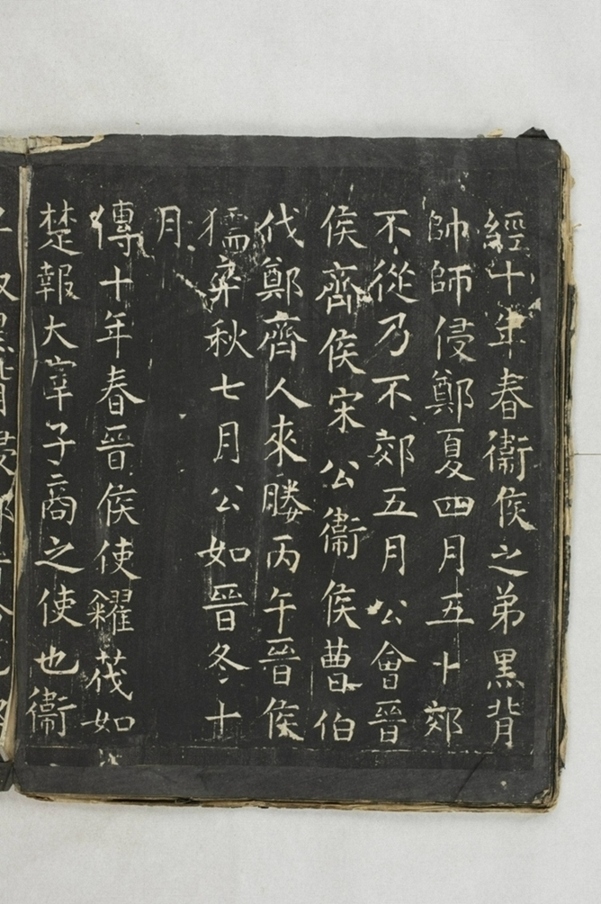 經十年春衛侯之弟黑背
帥師侵鄭夏四月五卜郊
不從乃不郊五月公會晉
侯齊侯宋公衛侯曹伯
伐鄭齊人來媵丙午晉侯
獳卒秋七月公如晉冬十
月
傳十年春晉侯使糴茷如
楚報大宰子商之使也衛